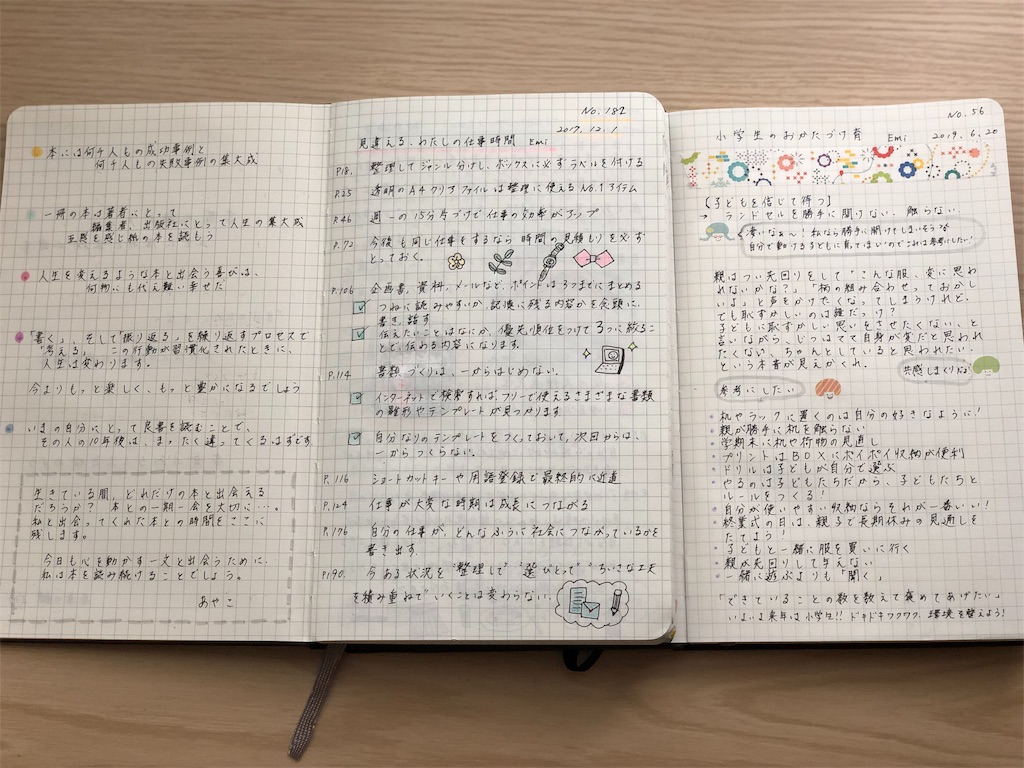 本には何千人もの成功事例と
何千人もの失敗事例の集大成
一冊の本は著者にとって
編集者、出版社にとって人生の集大成
五感を感じ紙の本を読もう
人生を変えるような本と出会う喜びは、
何物にも代え難い幸せだ
「書く」、そして「振り返る」を繰り返すプロセスで
"考える" この行動が習慣化されたときに、
人生は変わります。
今よりもっと楽しく、もっと豊かになるでしょう
いまの自分にとって良書を読むことで、
その人の10年後は、まったく違ってくるはずです
生きている間、どれだけの本と出会える
だろうか? 本との一期一会を大切に…。
私と出会ってくれた本との時間をここに
残します。
今日も心を動かす一文と出会うために
私は本を読み続けることでしょう。
あやこ
No.182
2017.12.1
見違える、わたしの仕事時間 Emi
P18. 整理してジャンル分けし、ボックスに必ずラベルを付ける
P.25 透明のA4クリアファイルは整理に使えるNo.1アイテム
P.46 週一の15分片づけで仕事の効率がアップ
P.72 今後も同じ仕事をするなら時間の見積もりを必ず
とっておく。
P.106 企画書、資料、メールなど、ポイントは3つまでにまとめる
つねに読みやすいか、記憶に残る内容かを念頭に、
書き、話す
伝えたいことはなにか、優先順位をつけて3つに絞るこ
とで、伝わる内容になります。
P.114 書類づくりは、一からはじめない。
インターネットで検索すれば、フリーで使えるさまざまな書類
の雛形やテンプレートが見つかります
自分なりのテンプレートをつくっておいて、次回からは、
一からつくらない。
P.116 ショートカットキーや用語登録で最終的に近道
P.124 仕事が大変な時期は成長につながる
P.176 自分の仕事が、どんなふうに社会につながっているかを
書き出す。
P.190. 今ある状況を"整理して""選びとって""ちいさな工夫
を積み重ねて"いくことは変わらない。
No.56
小学生のおかたづけ育 Emi 2019.6.20
【子どもを信じて待つ】
→ ランドセルを勝手に開けない、触らない。
凄いなぁ〜!私なら勝手に開けてしまいそう
自分で動ける子どもに育てほしいのでこれは参考にしたい!
親はつい先回りをして「こんな服、変に思わ
れないかな?」「柄の組み合わせっておかし
いよ」と声をかけたくなってしまうけれど、
でも恥ずかしいのは誰だっけ?
子どもに恥ずかしい思いをさせたくない、と
言いながら、じつはママ自身が変だと思われ
たくない、ちゃんとしていると思われたい、
という本音が見えかくれ。
共感しまくりだな
参考にしたい
机やラックに置くのは自分の好きなように!
親が勝手に机を触らない
学期末に机や荷物の見直し
プリントはBOXにポイポイ収納が便利
ドリルは子どもが自分で選ぶ
やるのは子どもたちだから、子どもたちと
ルールをつくる!
自分が使いやすい収納ならそれが一番いい!
終業式の日は、親子で長期休みの見通しを
たてよう!
子どもと一緒に服を買いに行く
親が先回りして与えない
一緒に遊ぶよりも「聞く」
「できていることの数を数えて褒めてあげたい」
いよいよ来年は小学生!!ドキドキワクワク、環境を整えよう!